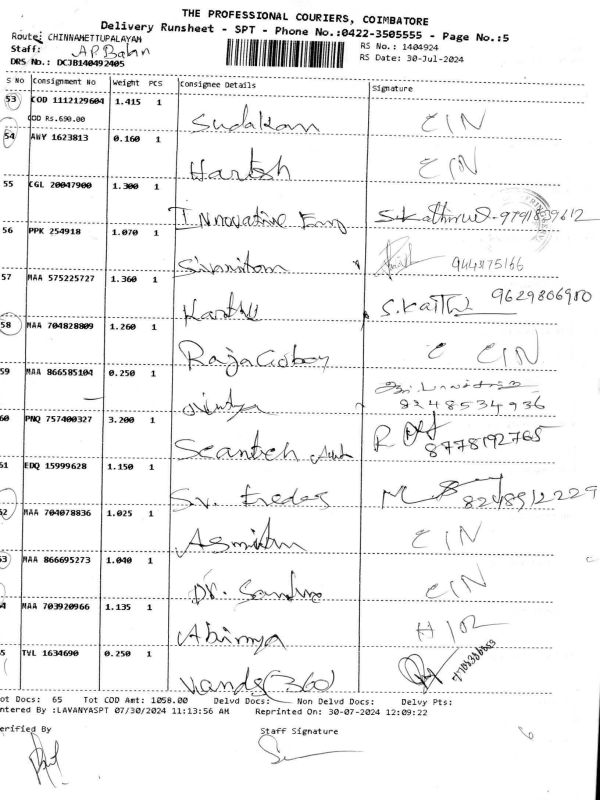 THE PROFESSIONAL COURIERS, COIMBATORE
Delivery Runsheet - SPT - Phone No.:0422-3505555 - Page No.:5
Route: CHINNAMETTUPALAYAM
RS No.: 1404924
Staff: A.P.Babu
RS Date: 30-Jul-2024
DRS No.: DCJB140492405
S No Consignment No Weight PCS Consignee Details Signature
53 COD 1112129604 1.415 1
COD Rs.690.00 Sudakam CIN
54 AWY 1623813 0.160 1
Haritsh CIN
55 CGL 20047900 1.300 1
Innovative Eng S.Kathirvel - 9791839612
56 PPK 254918 1.070 1
9444175166
57 MAA 575225727 1.360 1
S.Kathir 9629806980
58 MAA 704828809 1.260 1
RajaGopoy CIN
59 MAA 866585104 0.250 1
8248534936
60 PNQ 757400327 3.200 1
Scantech 8778192765
61 EDQ 15999628 1.150 1
S.V. 8248912229
62 MAA 704078836 1.025 1
CIN
63 MAA 866695273 1.040 1
Dr. Sandhya CIN
64 MAA 703920966 1.135 1
Abinaya
65 TVL 1634690 0.250 1
(360)
ot Docs: 65 Tot COD Amt: 1058.00 Delvd Docs: Non Delvd Docs: Delvy Pts:
ntered By :LAVANYASPT 07/30/2024 11:13:56 AM Reprinted On: 30-07-2024 12:09:22
erified By Staff Signature